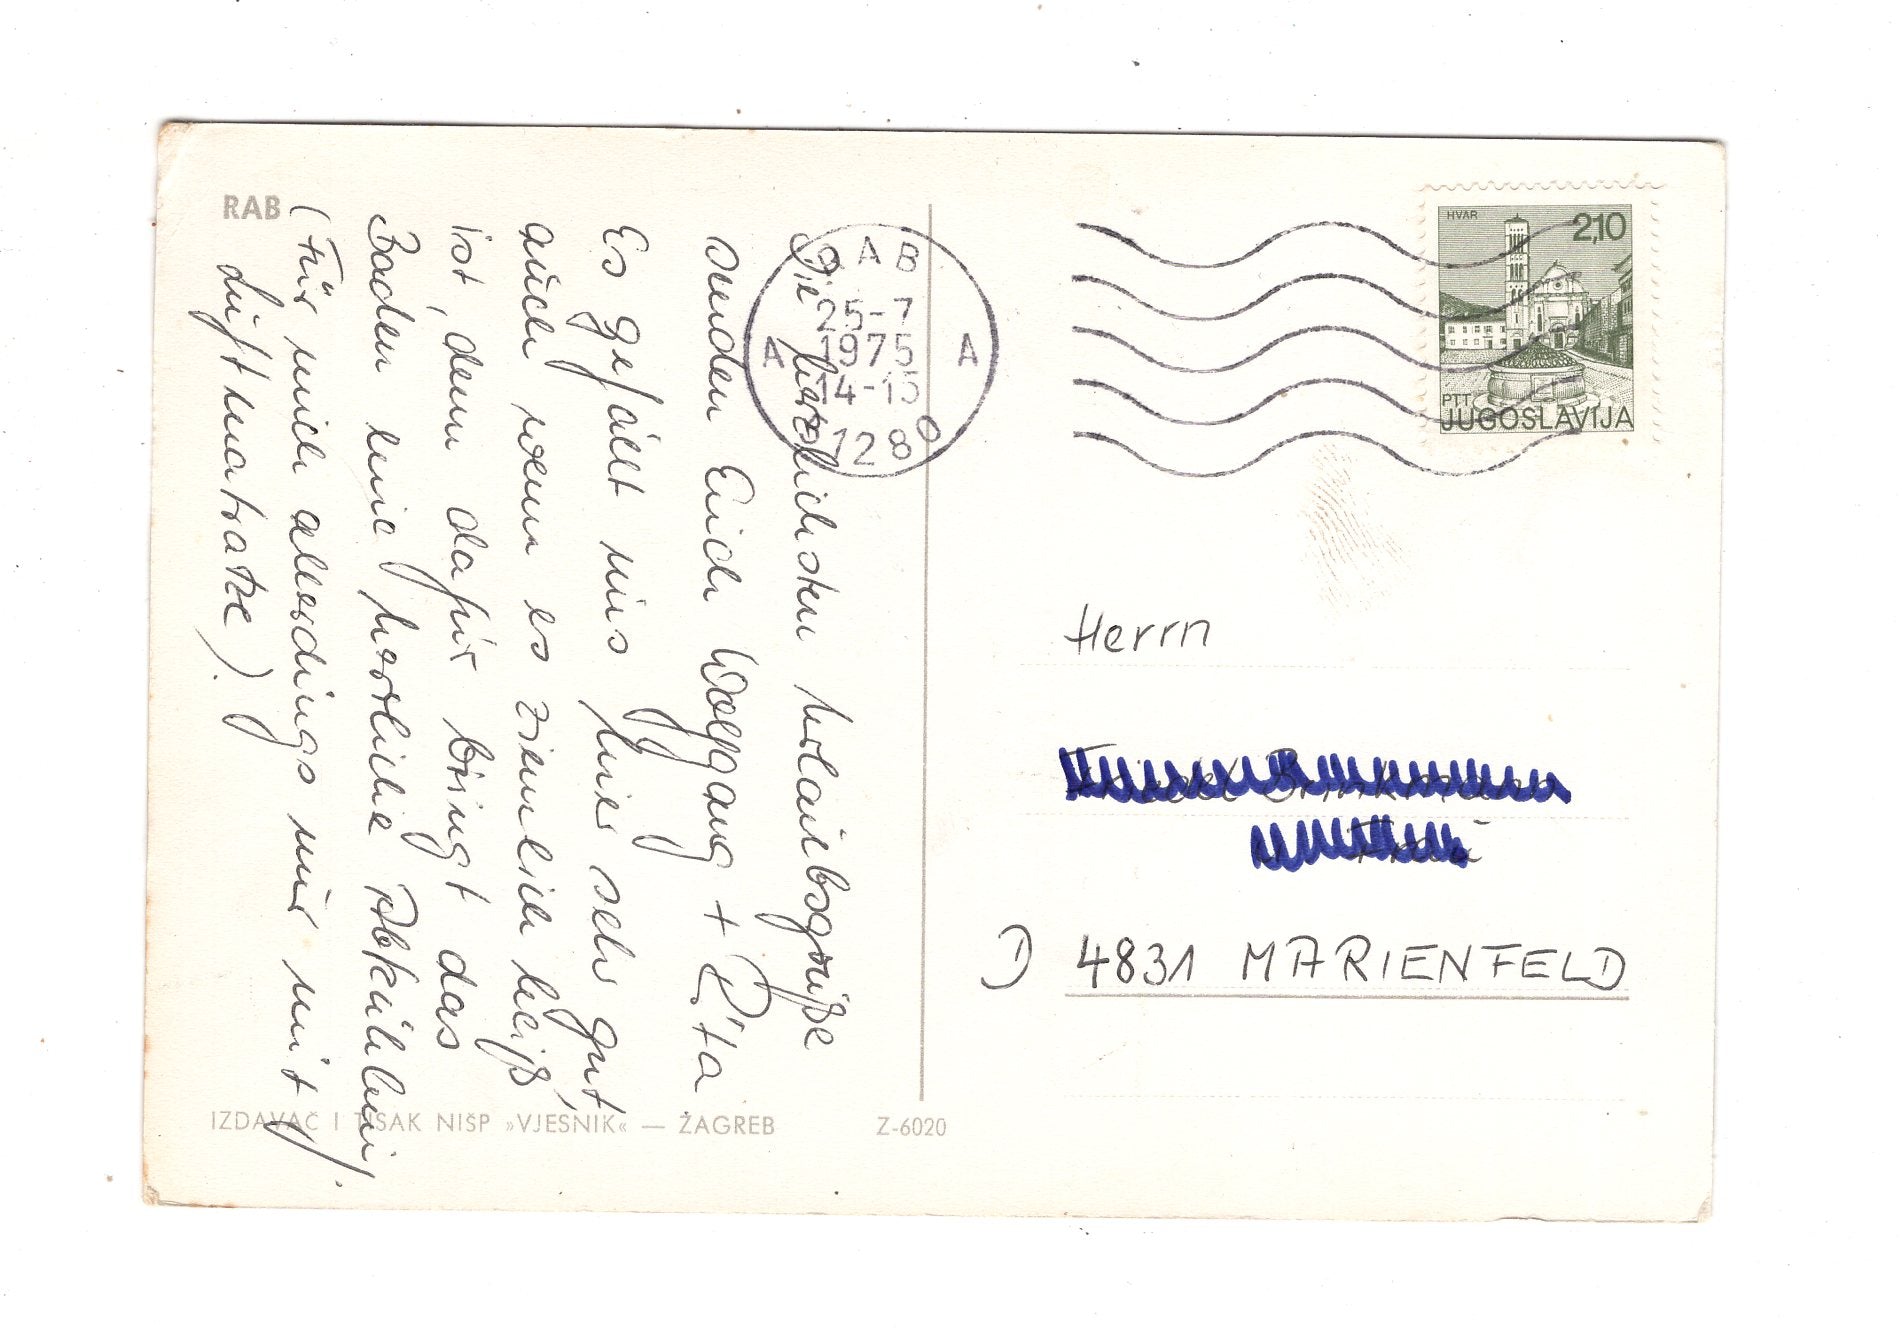 RAB
Die herzlichsten Urlaubsgrüße
senden Euch Wolfgang + Rita
Es gefällt uns hier sehr gut,
auch wenn es ziemlich heiß
ist, denn dafür bringt das
Baden eine herrliche Abkühlung.
(Für mich allerdings nur mit
Luftmatratze).
RAB
25-7
1975
14-15
A A
HVAR
2,10
PTT
JUGOSLAVIJA
Herrn
D 4831 MARIENFELD
IZDAVAČ I TISAK NIŠP »VJESNIK« — ZAGREB
Z-6020